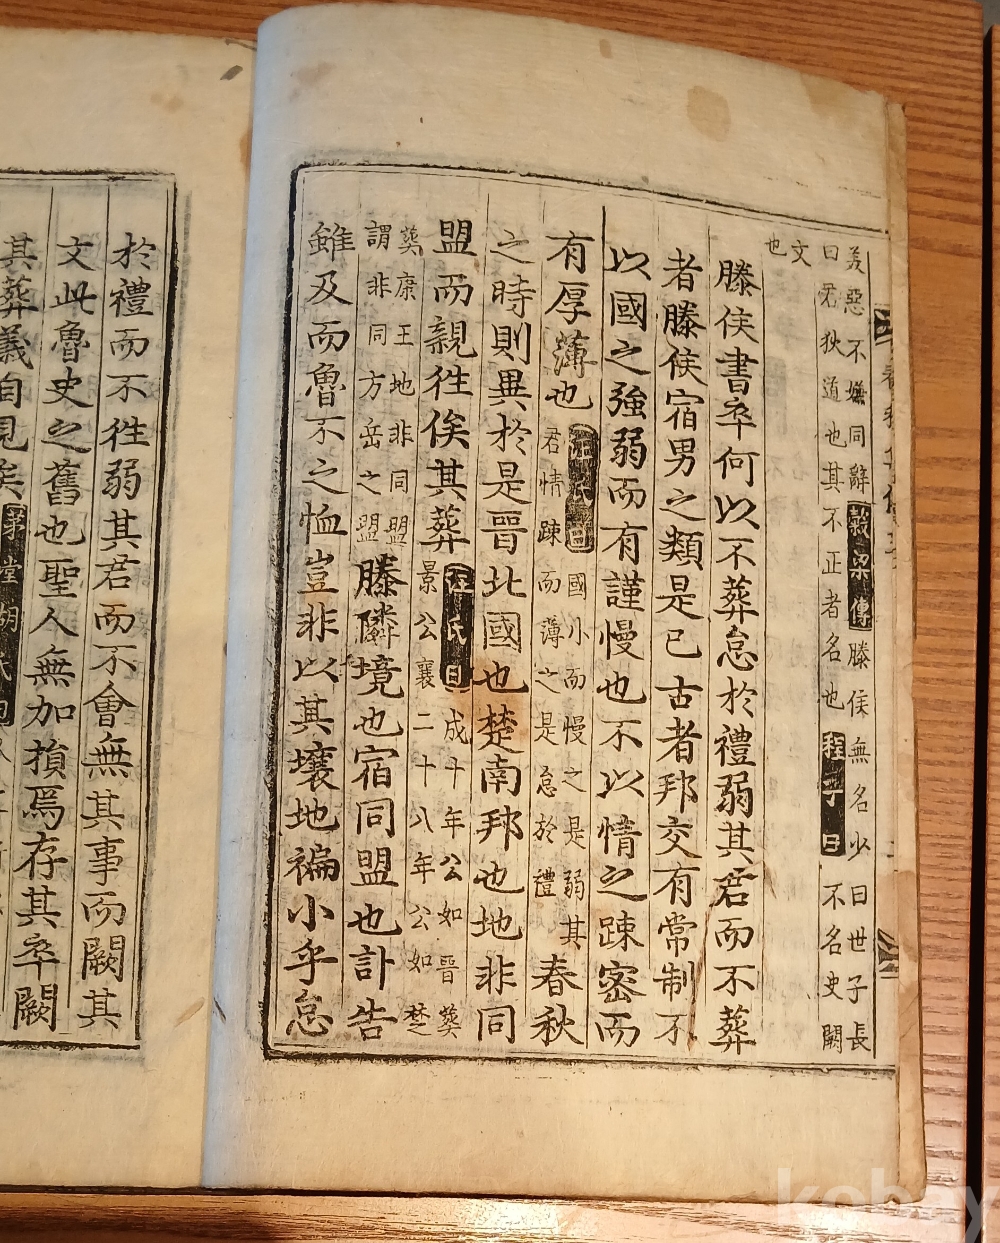 美惡不嫌同辭穀梁傳滕侯無名少曰世子長
曰君狄道也其不正者名也程子曰不名史闕
文
也
滕侯書卒何以不葬怠於禮弱其君而不葬
者滕侯宿男之類是已古者邦交有常制不
以國之強弱而有謹慢也不以情之踈密而
有厚薄也汪氏曰國小而慢之是弱其
君情踈而薄之是怠於禮春秋
之時則異於是晋北國也楚南邦也地非同
盟而親徃俟其葬左氏曰成十年公如晋葬
景公襄二十八年公如楚
葬康王地非同盟
謂非同方岳之盟滕隣境也宿同盟也訃告
雖及而魯不之恤豈非以其壤地褊小乎怠
於禮而不徃弱其君而不會無其事而闕其
文此魯史之舊也聖人無加損焉存其卒闕
其葬義自見矣茅堂胡氏曰
春秋集傳
kobay